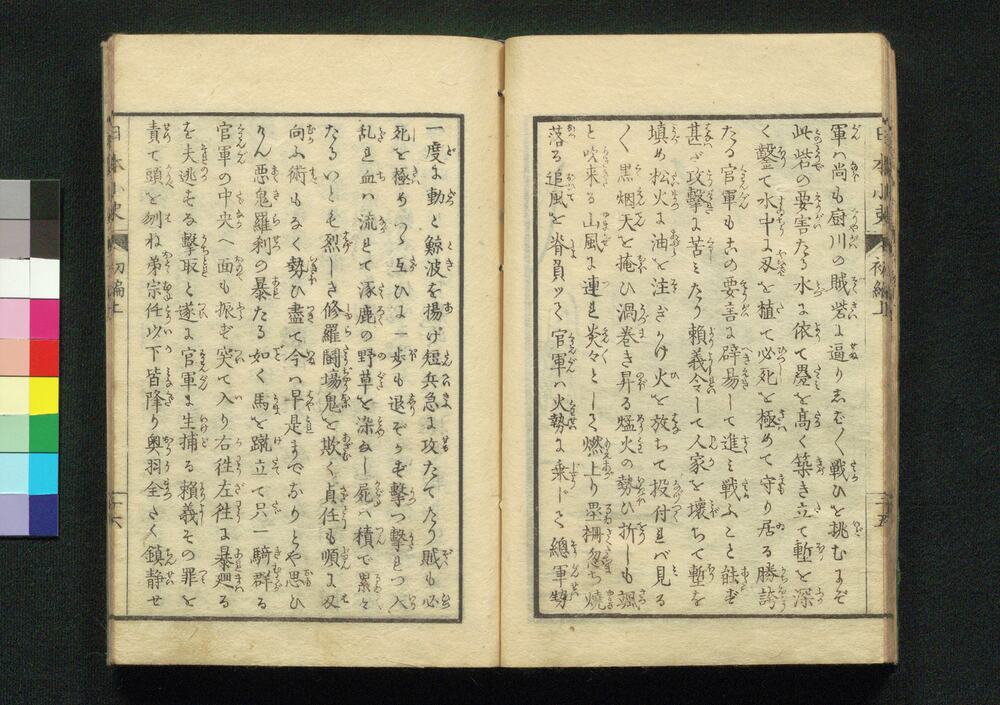 軍ハ尚も厨川の賊砦に逼りしばしば戦ひを挑むまず
此砦の要害たる水に依て塁を高く築き立て塹を深
く鑿て水中に刄を植て必死を極めて守り居る勝誇
たる官軍も此の要害に辟易して進ミ戦ふこと能ず
甚だ攻撃に苦ミたり頼義令して人家を壊ちて塹を
填め松火に油を注ぎかけ火を放ちて投付れバ見る
く黒烟天を掩ひ渦巻き昇る猛火の勢ひ折しも颯
と吹来る山風に連れ炎々として燃上り塁柵忽ち焼
落る追風を脊負ツヽ官軍ハ火勢に乗じて總軍勢
日本小史
初編上
十五
一度に動と鯨波を揚げ短兵急に攻たてたり賊も必
死を極めつゝ互ひに一歩も退ぞかず撃つ撃れつ入
乱れ血ハ流れて涿鹿の野草を染なし屍ハ積で累々
たるいとも烈しき修羅闘場鬼を欺く貞任も順に刄
向ふ術もなく勢ひ盡て今ハ早是までなりとや思ひ
けん悪鬼羅刹の暴たる如く馬を蹴立て只一騎群る
官軍の中央へ面も振ず突て入り右徃左徃に暴廻る
を夫逃すな撃取と遂に官軍に生捕る頼義その罪を
責て頭を刎ね弟宗任以下皆降り奥羽全たく鎮静せ
日本小史
初編上
十六